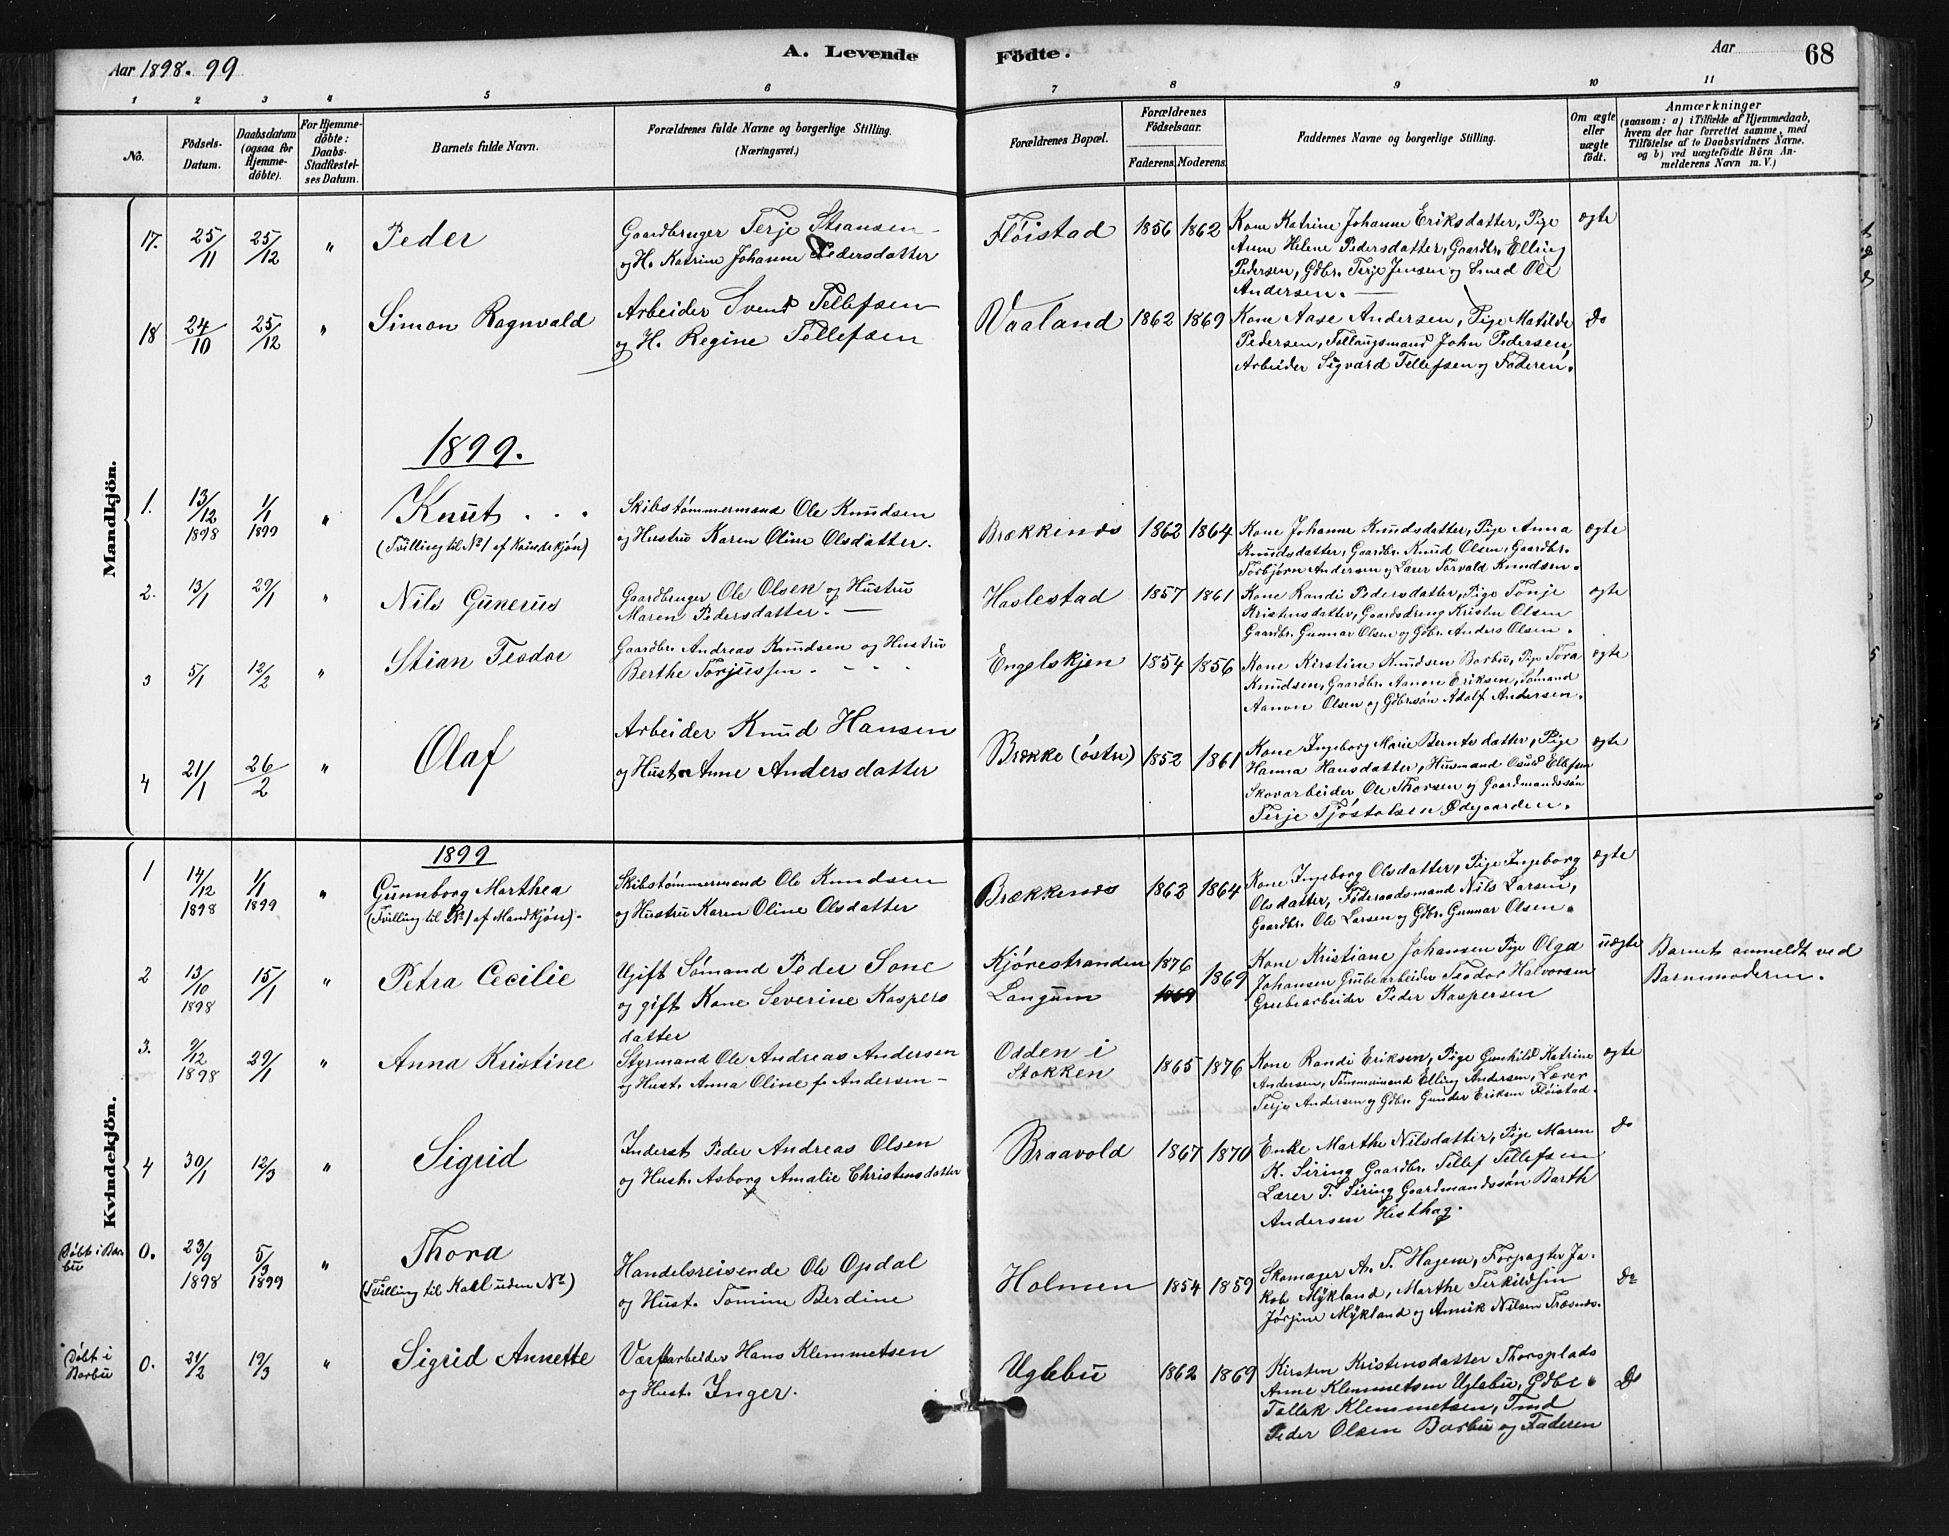 Aar 1898. 99
A. Levende
Födte.
Aar
68
1 2 3 4 5 6 7 8 9 10 11
No.
Födsels-
Datum.
Daabsdatum
(ogsaa for
Hjemme-
döbte).
For Hjemme-
döbte:
Daabs-
Stadfæstel-
ses Datum.
Barnets fulde Navn.
Forældrenes fulde Navne og borgerlige Stilling.
(Næringsvei.)
Forældrenes Bopæl.
Forældrenes
Födselsaar.
Faderens. Moderens.
Faddernes Navne og borgerlige Stilling.
Om ægte
eller
uægte
födt.
Anmærkninger
(saasom: a) i Tilfælde af Hjemmedaab,
hvem der har forrettet samme, med
Tilföielse af to Daabsvidners Navne.
og b) ved uægtefödte Börn An-
melderens Navn m. V.)
Mandkjön.
17. 25/11 25/12 " Peder
Gaardbruger Terje Stiansen
og H. Katrine Johanne Pedersdatter
Fløistad 1856 1862
Kone Katrine Johanne Eriksdatter, Pige
Anne Helene Pedersdatter, Gaardbr. Elling
Pedersen, Gdbr. Terje Jensen og Smed Ole
Andersen.
ægte
18 24/10 25/12 " Simon Ragnvald
Arbeider Svend Tellefsen
og H. Regine Tellefsen
Vaaland 1862 1869
Kone Aase Andersen, Pige Matilde
Pedersen, Follaugsmand John Pedersen,
Arbeider Sigvard Tellefsen og Faderen.
Do
1899.
1. 13/12 1898 1/1 1899 " Knut
(Tvilling til No 1 af Kvindekjøn)
Skibstømmermand Ole Knudsen
og Hustru Karen Oline Olsdatter.
Brækkenes 1862 1864
Kone Johanne Knudsdatter, Pige Anna
Knudsdatter, Gaardbr. Knud Olsen, Gaardbr.
Torbjørn Andersen og Lærer Torvald Knudsen.
ægte
2. 13/1 29/1 " Nils Gunerus
Gaardbruger Ole Olsen og Hustru
Maren Pedersdatter.
Haslestad 1857 1861
Kone Randi Pedersdatter, Pige Tonje
Kristensdatter, Gaardsdreng Kristen Olsen
Gaardbr. Gunnar Olsen og Gdbr. Anders Olsen.
ægte
3 5/1 12/2 " Stian Teodor
Gaardbr. Andreas Knudsen og Hustru
Berthe Torjussen.
Engelskjen 1854 1856
Kone Kirstine Knudsen Barbu, Pige Tora
Knudsen, Gaardbr. Aanon Eriksen, Sømand
Aanon Olsen og Gdbrsøn Adolf Andersen.
ægte
4 21/1 26/2 " Olaf
Arbeider Knud Hansen
og Hust. Anne Andersdatter
Brække (østre) 1852 1861
Kone Ingeborg Marie Berntsdatter, Pige
Hanna Hansdatter, Husmand Osuld Ellefsen
Skovarbeider Ole Thorsen og Gaardmandssøn
Terje Tjøstolsen Ødegaarden.
ægte
Kvindekjön.
1899
1 14/12 1898 1/1 1899 " Gunnborg Marthea
(Tvilling til No 1 af Mandkjøn).
Skibstømmermand Ole Knudsen
og Hustru Karen Oline Olsdatter
Brækkenes 1862 1864
Kone Ingeborg Olsdatter, Pige Ingeborg
Olsdatter, Føderaadsmand Nils Larsen,
Gaardbr. Ole Larsen og Gdbr. Gunnar Olsen.
ægte
2 13/10 1898 15/1 " Petra Cecilie
Ugift Sømand Peder Sone
og gift Kone Severine Kaspers
datter
Kjørestranden
Langum
1876 1869
1869
Kone Kristiane Johansen Pige Olga
Johansen Grubearbeider Teodor Halvorsen
Grubearbeider Peder Kaspersen
uægte
Barnets anmeldt ved
Barnemoderen.
3. 9/12 1898 29/1 " Anna Kristine
Styrmand Ole Andreas Andersen
og Hust. Anna Oline f. Andersen
Odden i
Stokken
1865 1876
Kone Randi Eriksen, Pige Gunhild Katrine
Andersen, Tømmermand Elling Andersen, Lærer
Terje Andersen og Gdbr. Gunder Eriksen Fløistad.
ægte
4 30/1 12/3 " Sigrid
Inderst Peder Andreas Olsen
og Hust. Asborg Amalie Christensdatter
Braavold 1867 1870
Enke Marthe Nilsdatter, Pige Maren
K. Siring Gaardbr. Tellef Tellefsen
Lærer T. Siring Gaardmandssøn Barth
Andersen Histhag.
Do
Døbt i Bar
bu
0. 23/9 1898 5/3 1899 " Thora
(Tvilling til Karl uden No)
Handelsreisende Ole Opdal
og Hust. Tomine Berdine
Holmen 1854 1859
Skomager A. T. Hagene, Forpagter Ja-
kob Mykland, Marthe Terkildsen
Jørgine Mykland og Annik Nilsen Træsnes.
Do
Døbt i
Barbu
0. 21/2 19/3 " Sigrid Annette
Værftarbeider Hans Klemmetsen
og Hust. Inger.
Uglebu 1862 1869
Kirsten Kristensdatter Thorsplads
Anne Klemmetsen Uglebu, Gdbr.
Tallak Klemmetsen, Tmd
Peder Olsen Barbu og Faderen
Do